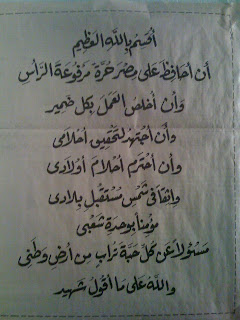 أقسم بالله العظيم
أن أحافظ على مصر حرة مرفوعة الرأس
وأن أخلص العمل بكل ضمير
وأن أجتهد لتحقيق أحلامى
وأن أحترم أحلام أولادى
واثقا فى شمس مستقبل بلادى
مؤمنا بوحدة شعبى
مسئولا عن كل حبة تراب من أرض وطنى
والله على ما أقول شهيد